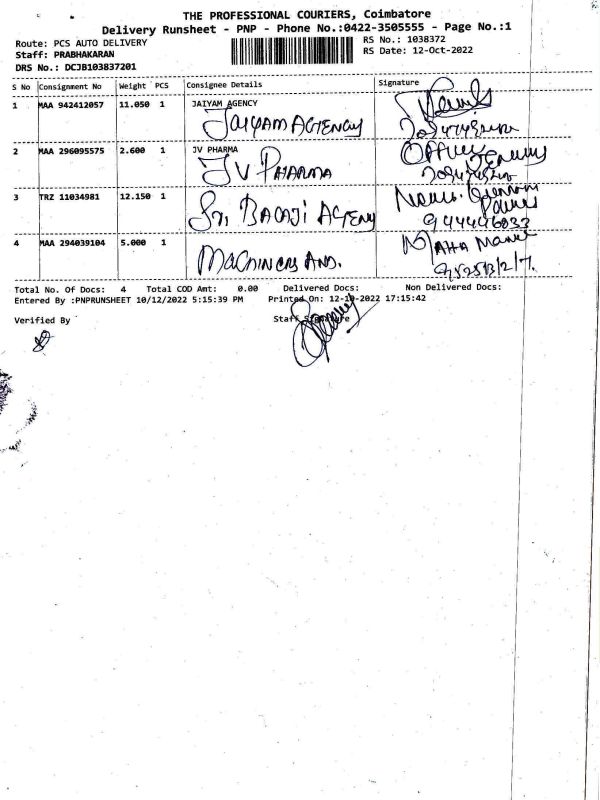 THE PROFESSIONAL COURIERS, Coimbatore
Delivery Runsheet - PNP - Phone No.:0422-3505555 - Page No.:1
Route: PCS AUTO DELIVERY
RS No.: 1038372
Staff: PRABHAKARAN
RS Date: 12-Oct-2022
DRS No.: DCJB103837201
S No Consignment No Weight PCS Consignee Details Signature
1 MAA 942412057 11.050 1 JAIYAM AGENCY
JAIYAM AGENCY
2 MAA 296095575 2.600 1 JV PHARMA
JV PHARMA
3 TRZ 11034981 12.150 1
Sri BALAJI AGENY
9444446033
4 MAA 294039104 5.000 1
MAHA
Total No. Of Docs: 4 Total COD Amt: 0.00 Delivered Docs: Non Delivered Docs:
Entered By :PNPRUNSHEET 10/12/2022 5:15:39 PM Printed On: 12-10-2022 17:15:42
Verified By Staff Signature